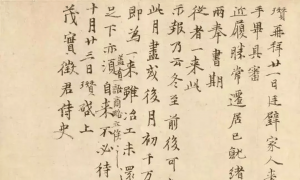 瓚再拜廿一日璧家人來
手畢具審
近履勝常遷居已就緒
兩奉書期
從者一來此
示報乃云冬至前後可
此月盡或後月初十方
即為一來雖冶工未還
蓋有一語商略
足下亦須自來不必待
十月廿三日瓚啟上
茂實徵君侍史